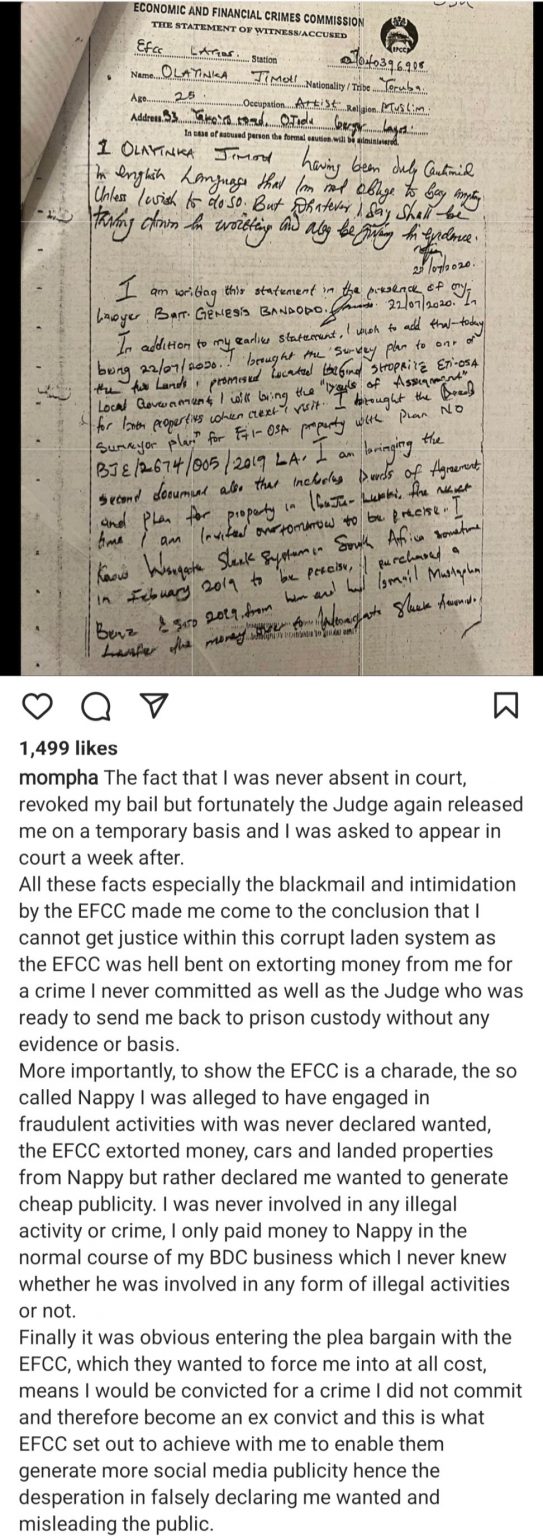 ECONOMIC AND FINANCIAL CRIMES COMMISSION
THE STATEMENT OF WITNESS/ACCUSED
EFCC
Efcc LAGOS. Station
Name OLAYINKA JIMOH Nationality / Tribe Yoruba.
Age 25 Occupation Artist Religion Muslim.
Address 33 road, Ojodu berger Lagos.
In case of accused person the formal caution will be administered.
I OLAYINKA JIMOH having been duly
in english Language that Im not oblige to Say
Unless I wish to do So. But Whatever I Say Shall be
down in and be in Evidence.
22/07/2020.
I am writing this statement in the presence of my
Lawyer Barr. GENESIS 22/07/2020. In
In addition to my earlier statement, I wish to add that today
being 22/07/2020. I brought the survey plan to one of
the two Lands I promised Located behind SHOPRITE Eti-OSA
Local Government I will bring the "Deeds of Assignment"
for both properties when next I visit. I brought the Deed
Surveyor plan" for Eti-OSA property with Plan NO
BJE/2674/005/2019 LA. I am bringing the
second document also that includes Deeds of Agreement
and Plan for property in Ibeju-Lekki. the next
time I am Invited to be precise. I
Know Sleek System in South Africa sometime
in Febuary 2019 to be precise, I purchased a
Benz 2019 from him and Ismail Mustapha
the money to Sleek
1,499 likes
mompha The fact that I was never absent in court,
revoked my bail but fortunately the Judge again released
me on a temporary basis and I was asked to appear in
court a week after.
All these facts especially the blackmail and intimidation
by the EFCC made me come to the conclusion that I
cannot get justice within this corrupt laden system as
the EFCC was hell bent on extorting money from me for
a crime I never committed as well as the Judge who was
ready to send me back to prison custody without any
evidence or basis.
More importantly, to show the EFCC is a charade, the so
called Nappy I was alleged to have engaged in
fraudulent activities with was never declared wanted,
the EFCC extorted money, cars and landed properties
from Nappy but rather declared me wanted to generate
cheap publicity. I was never involved in any illegal
activity or crime, I only paid money to Nappy in the
normal course of my BDC business which I never knew
whether he was involved in any form of illegal activities
or not.
Finally it was obvious entering the plea bargain with the
EFCC, which they wanted to force me into at all cost,
means I would be convicted for a crime I did not commit
and therefore become an ex convict and this is what
EFCC set out to achieve with me to enable them
generate more social media publicity hence the
desperation in falsely declaring me wanted and
misleading the public.